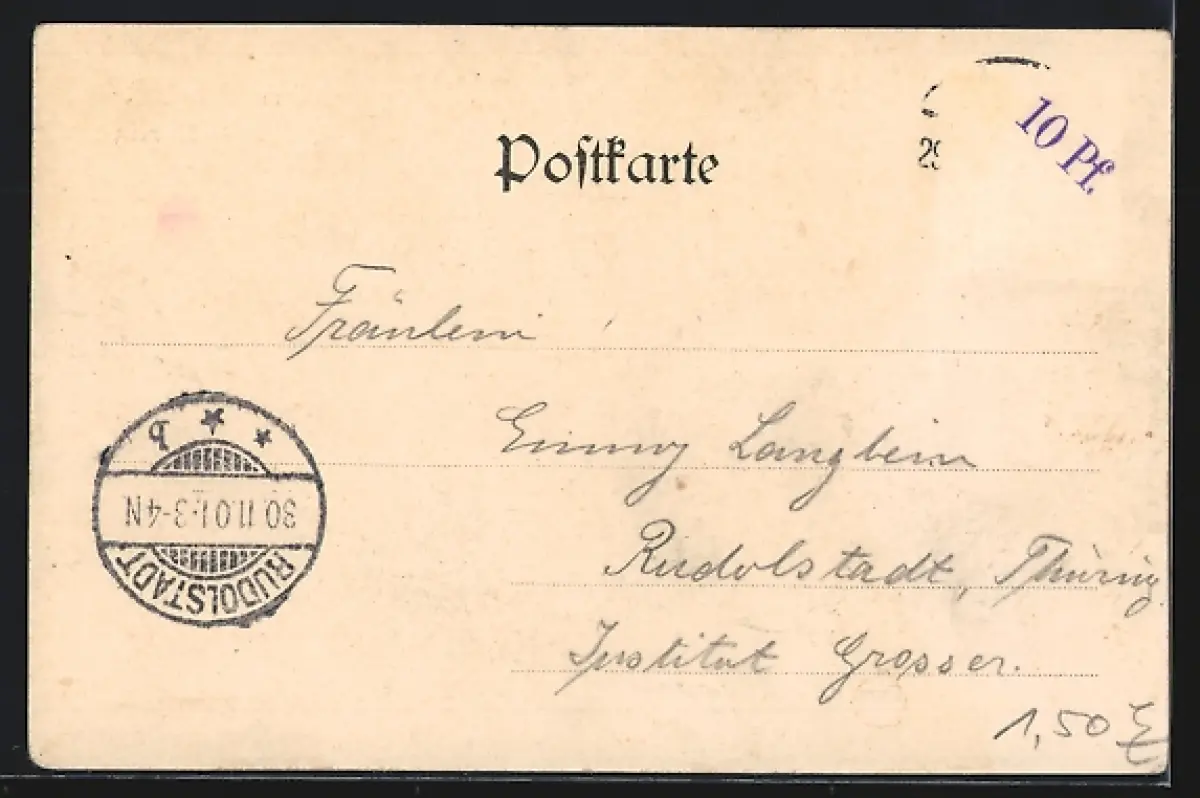 10 Pf.
29
Postkarte
Fräulein
Emmy Langbein
Rudolstadt, Thüring.
Institut Grosser.
RUDOLSTADT
30.11.01.3-4N
* * b
1,50